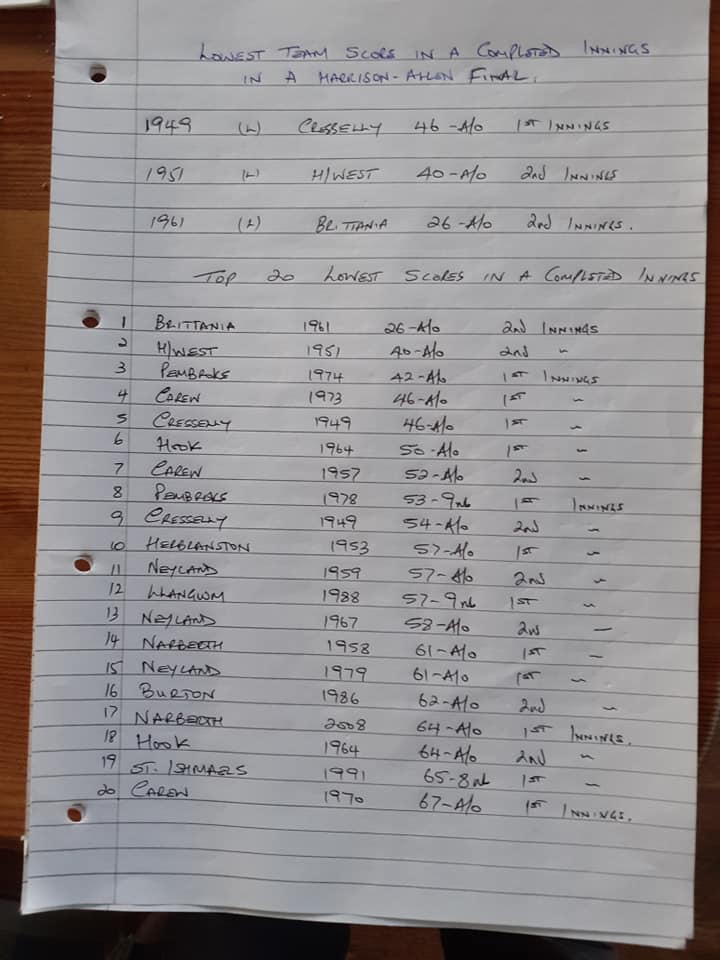 LOWEST TEAM SCORE IN A COMPLETED INNINGS
IN A HARRISON-ALLEN FINAL.
1949 (L) CRESSELLY 46-A/o 1ST INNINGS
1951 (L) H/WEST 40-A/o 2nd INNINGS
1961 (L) BRITTANIA 26-A/o 2nd INNINGS.
TOP 20 LOWEST SCORES IN A COMPLETED INNINGS
1 BRITTANIA 1961 26-A/o 2nd INNINGS
2 H/WEST 1951 40-A/o 2nd "
3 PEMBROKE 1974 42-A/o 1ST INNINGS
4 CAREW 1973 46-A/o 1ST "
5 CRESSELLY 1949 46-A/o 1ST "
6 HOOK 1964 50-A/o 1ST "
7 CAREW 1957 52-A/o 2nd "
8 PEMBROKE 1978 53-9 1ST INNINGS
9 CRESSELLY 1949 54-A/o 2nd "
10 HERBRANSTON 1953 57-A/o 1ST "
11 NEYLAND 1959 57-A/o 2nd "
12 LLANGWM 1988 57-9 1ST "
13 NEYLAND 1967 58-A/o 2nd "
14 NARBERTH 1958 61-A/o 1ST "
15 NEYLAND 1979 61-A/o 1ST "
16 BURTON 1986 62-A/o 2nd "
17 NARBERTH 2008 64-A/o 1ST INNINGS.
18 HOOK 1964 64-A/o 2nd "
19 ST. ISHMAELS 1991 65-8 1ST "
20 CAREW 1970 67-A/o 1ST INNINGS.